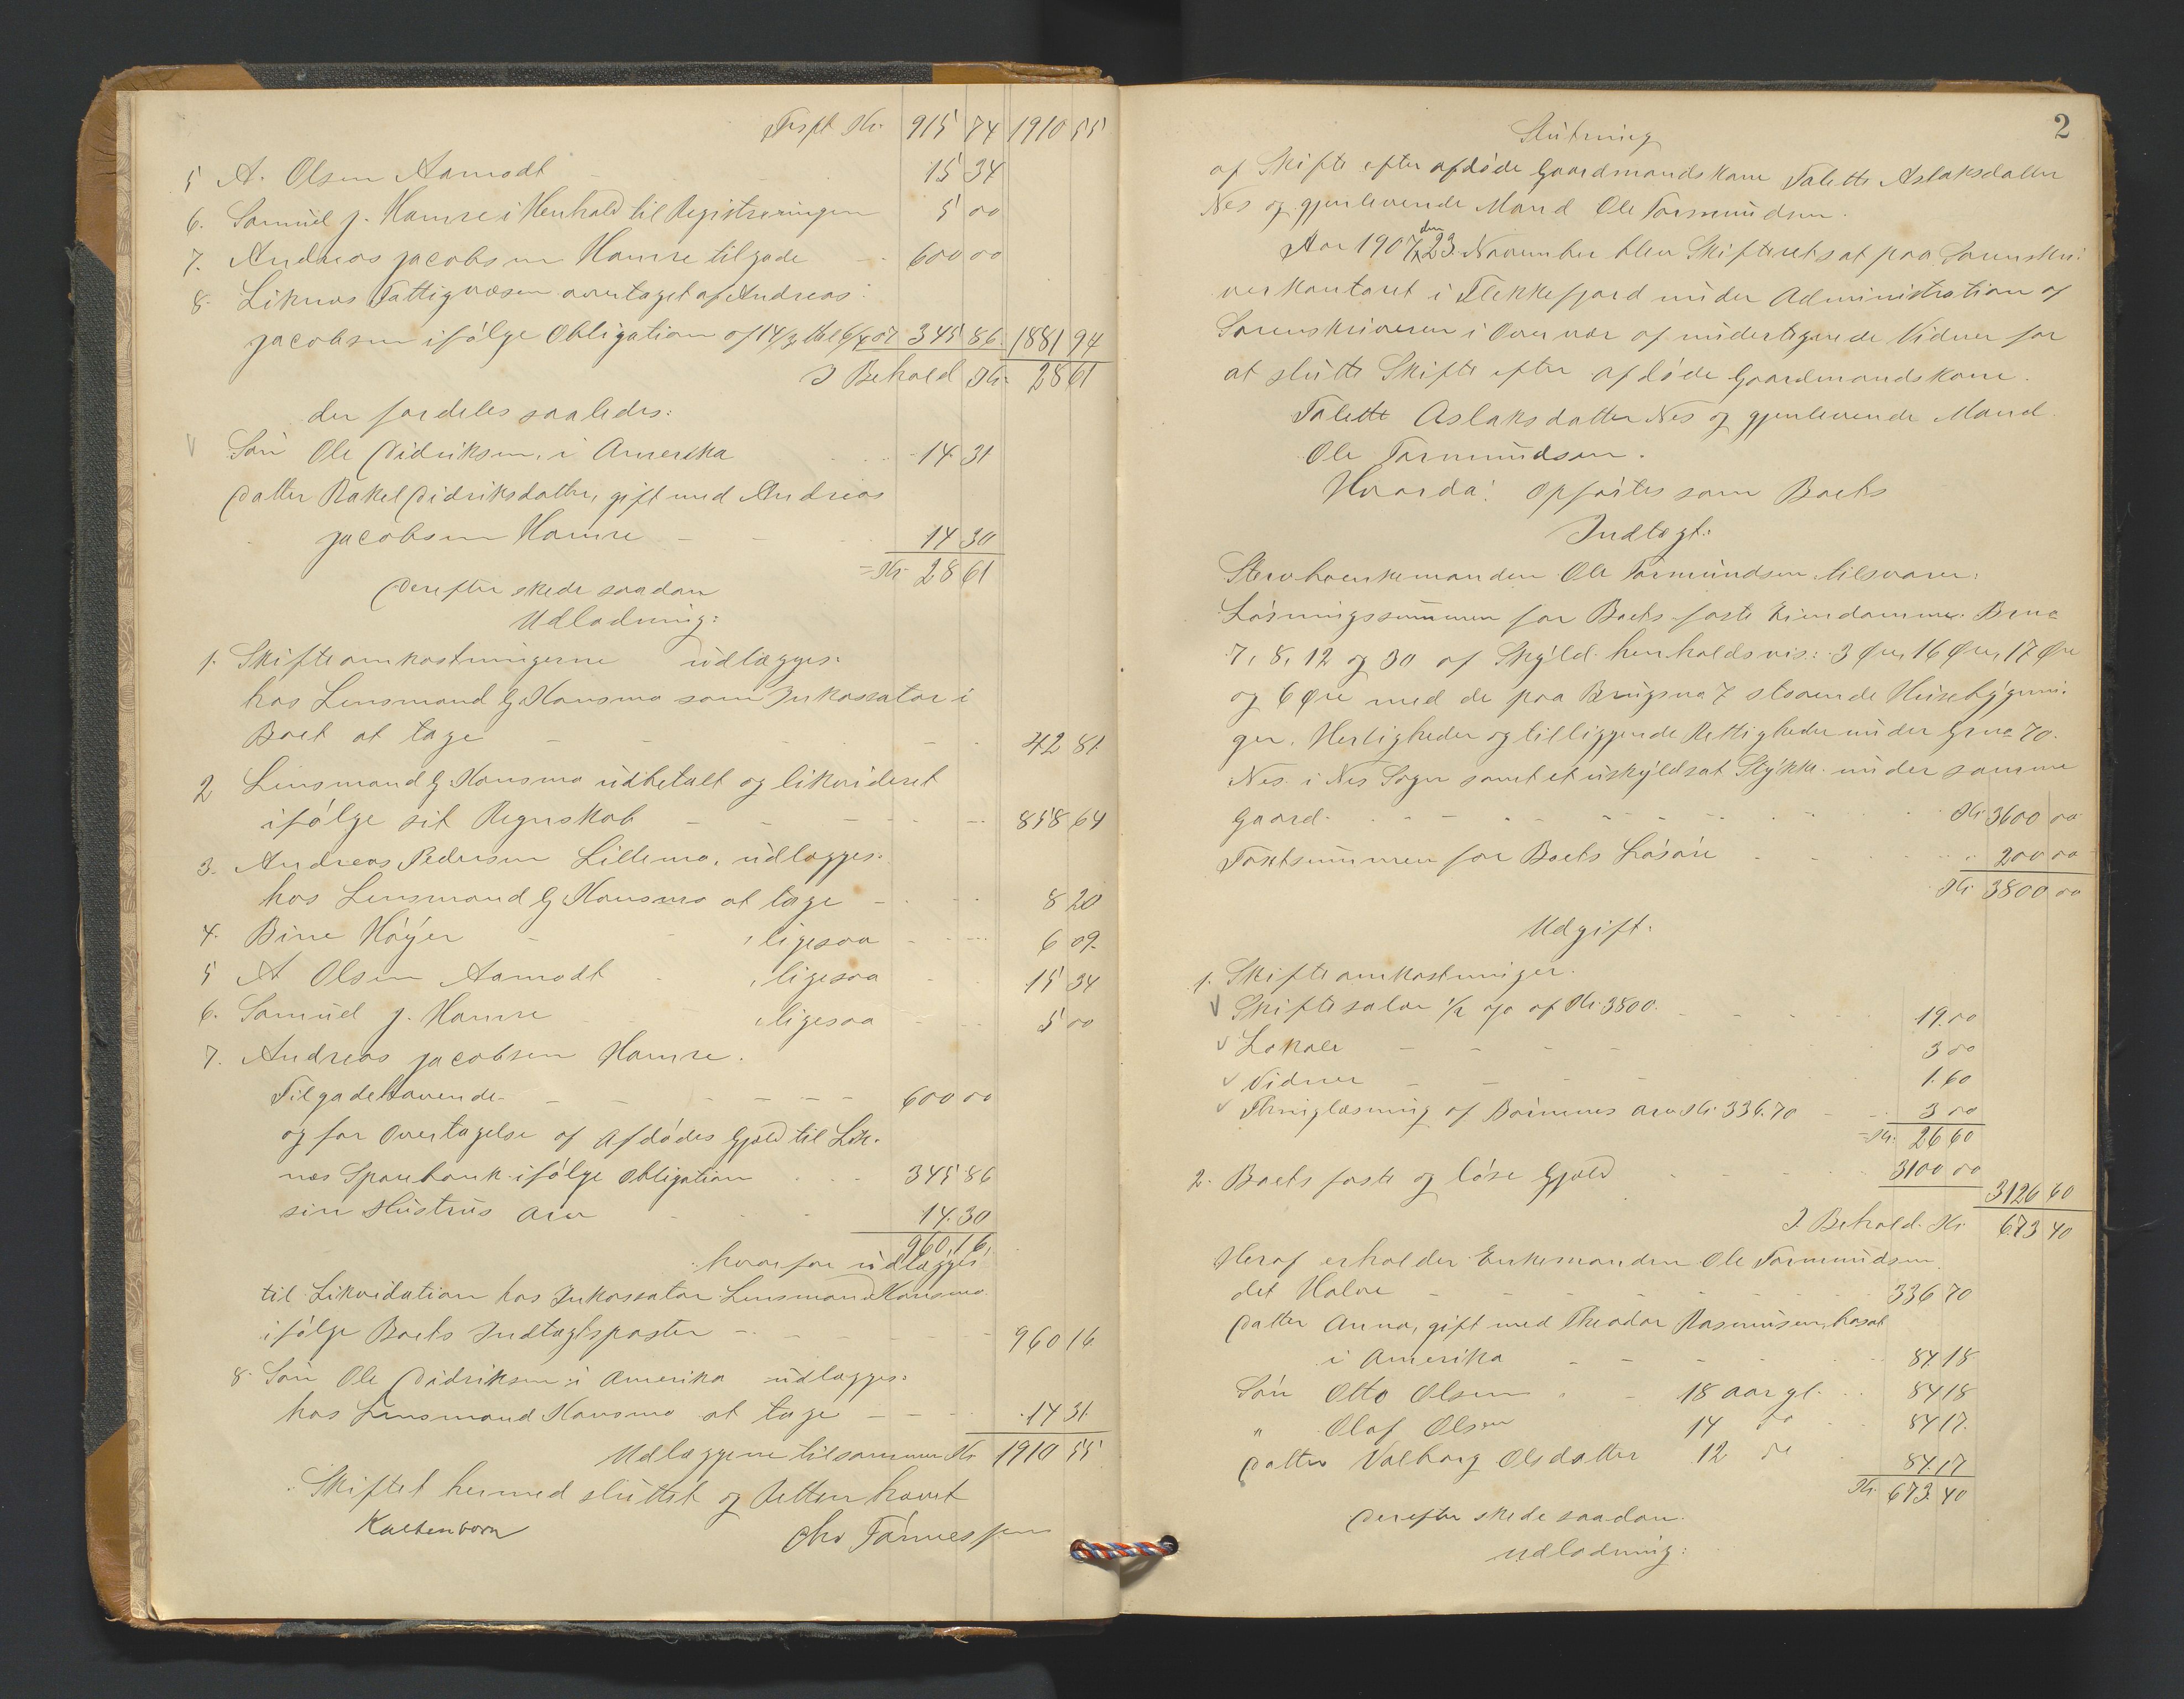 Trspt Kr. 915 74 1910 55
5 A. Olsen Aamodt 15 34
6. Samuel J. Hamre i Henhold til Registreringen 5 00
7. Andreas Jacobsen Hamre tilgode 600 00
8. Liknes Fattigvæsen overtaget af Andreas
Jacobsen ifølge Obligation af 14/3 345 86 1881 94
I Behold Kr. 28 61
der fordeles saaledes:
Søn Ole Didriksen, i Amerika 14 31
Datter Rakel Didriksdatter, gift med Andreas
Jacobsen Hamre 14 30
= Kr. 28 61
Derefter skede saadan
Udlodning:
1. Skifteomkostningerne udlægges:
hos Lensmand G. Hansmo som Inkassator i
Boet at tage 42 81
2 Lensmand G. Hansmo udbetalt og likvideret
ifølge sit Regnskab 858 64
3. Andreas Pedersen Lillemo, udlægges:
hos Lensmand G Hansmo at tage 8 20
4. Bine Høyer ligesaa 6 09
5 A Olsen Aamodt ligesaa 15 34
6. Samuel J. Hamre ligesaa 5 00
7. Andreas Jacobsen Hamre.
Tilgodehavende 600 00
og for Overtagelse af Afdødes Gjæld til Lik-
nes Sparebank ifølge Obligation 345 86
sin Hustrus Arv 14.30
960,16,
hvorfor udlægges
til Likvidation hos Inkassator Lensmand Hansmo
ifølge Boets Indtægtsposter 960 16
8. Søn Ole Didriksen i Amerika udlægges:
hos Lensmand Hansmo at tage 14 31
Udlæggene tilsammen Kr 1910 55
Skiftet hermed sluttet og Retten hævet
Kaltenborn Chr Tønnessen
2
Slutning
af Skifte efter afdøde Gaardmandskone Talette Aslaksdatter
Nes og gjenlevende Mand Ole Tormundsen.
Aar 1907, den 23 November blev Skifteret sat paa Sorenskri-
verkontoret i Flekkefjord under Administration af
Sorenskriveren i Overvær af undertegnede Vidner for
at slutte Skifte efter afdøde Gaardmandskone
Talette Aslaksdatter Nes og gjenlevende Mand
Ole Tormundsen.
Hvorda: Opførtes som Boets
Indtægt:
Stervboenkemanden Ole Tormundsen tilsvarer:
Løsningssummen for Boets faste Eiendomme Bno
7, 8, 12 og 30 af Skyld henholdsvis: 3 Øre, 16 Øre, 17 Øre
og 6 Øre med de paa Brugsno 7 staaende Husebygnin-
ger, Herligheder og tilliggende Rettigheder under Gno 70.
Nes i Nes Sogn samt et uskyldsat Stykke under samme
Gaard Kr 3600 00
Taxtsummen for Boets Løsøre 200 00
Kr 3800 00
Udgift.
1. Skifteomkostninger.
Skiftesalær ½ o/o af Kr. 3800. 19.00
Lokale 3 00
Vidner 1.60
Thinglæsning af Børnenes Arv Kr. 336.70 3 00
= Kr. 26 60
2. Boets faste og løse Gjæld 3100 00
3126 60
I Behold Kr. 673 40
Heraf erholder Enkemanden Ole Tormundsen
det Halve 336 70
Datter Anna, gift med Theodor Rasmusen, bosat
i Amerika 84.18
Søn Otto Olsen 18 Aar gl. 84 18
" Olaf Olsen 14 do 84 17.
Datter Valborg Olsdatter 12 do 84.17
Kr. 673.40
Derefter skede saadan
Udlodning: